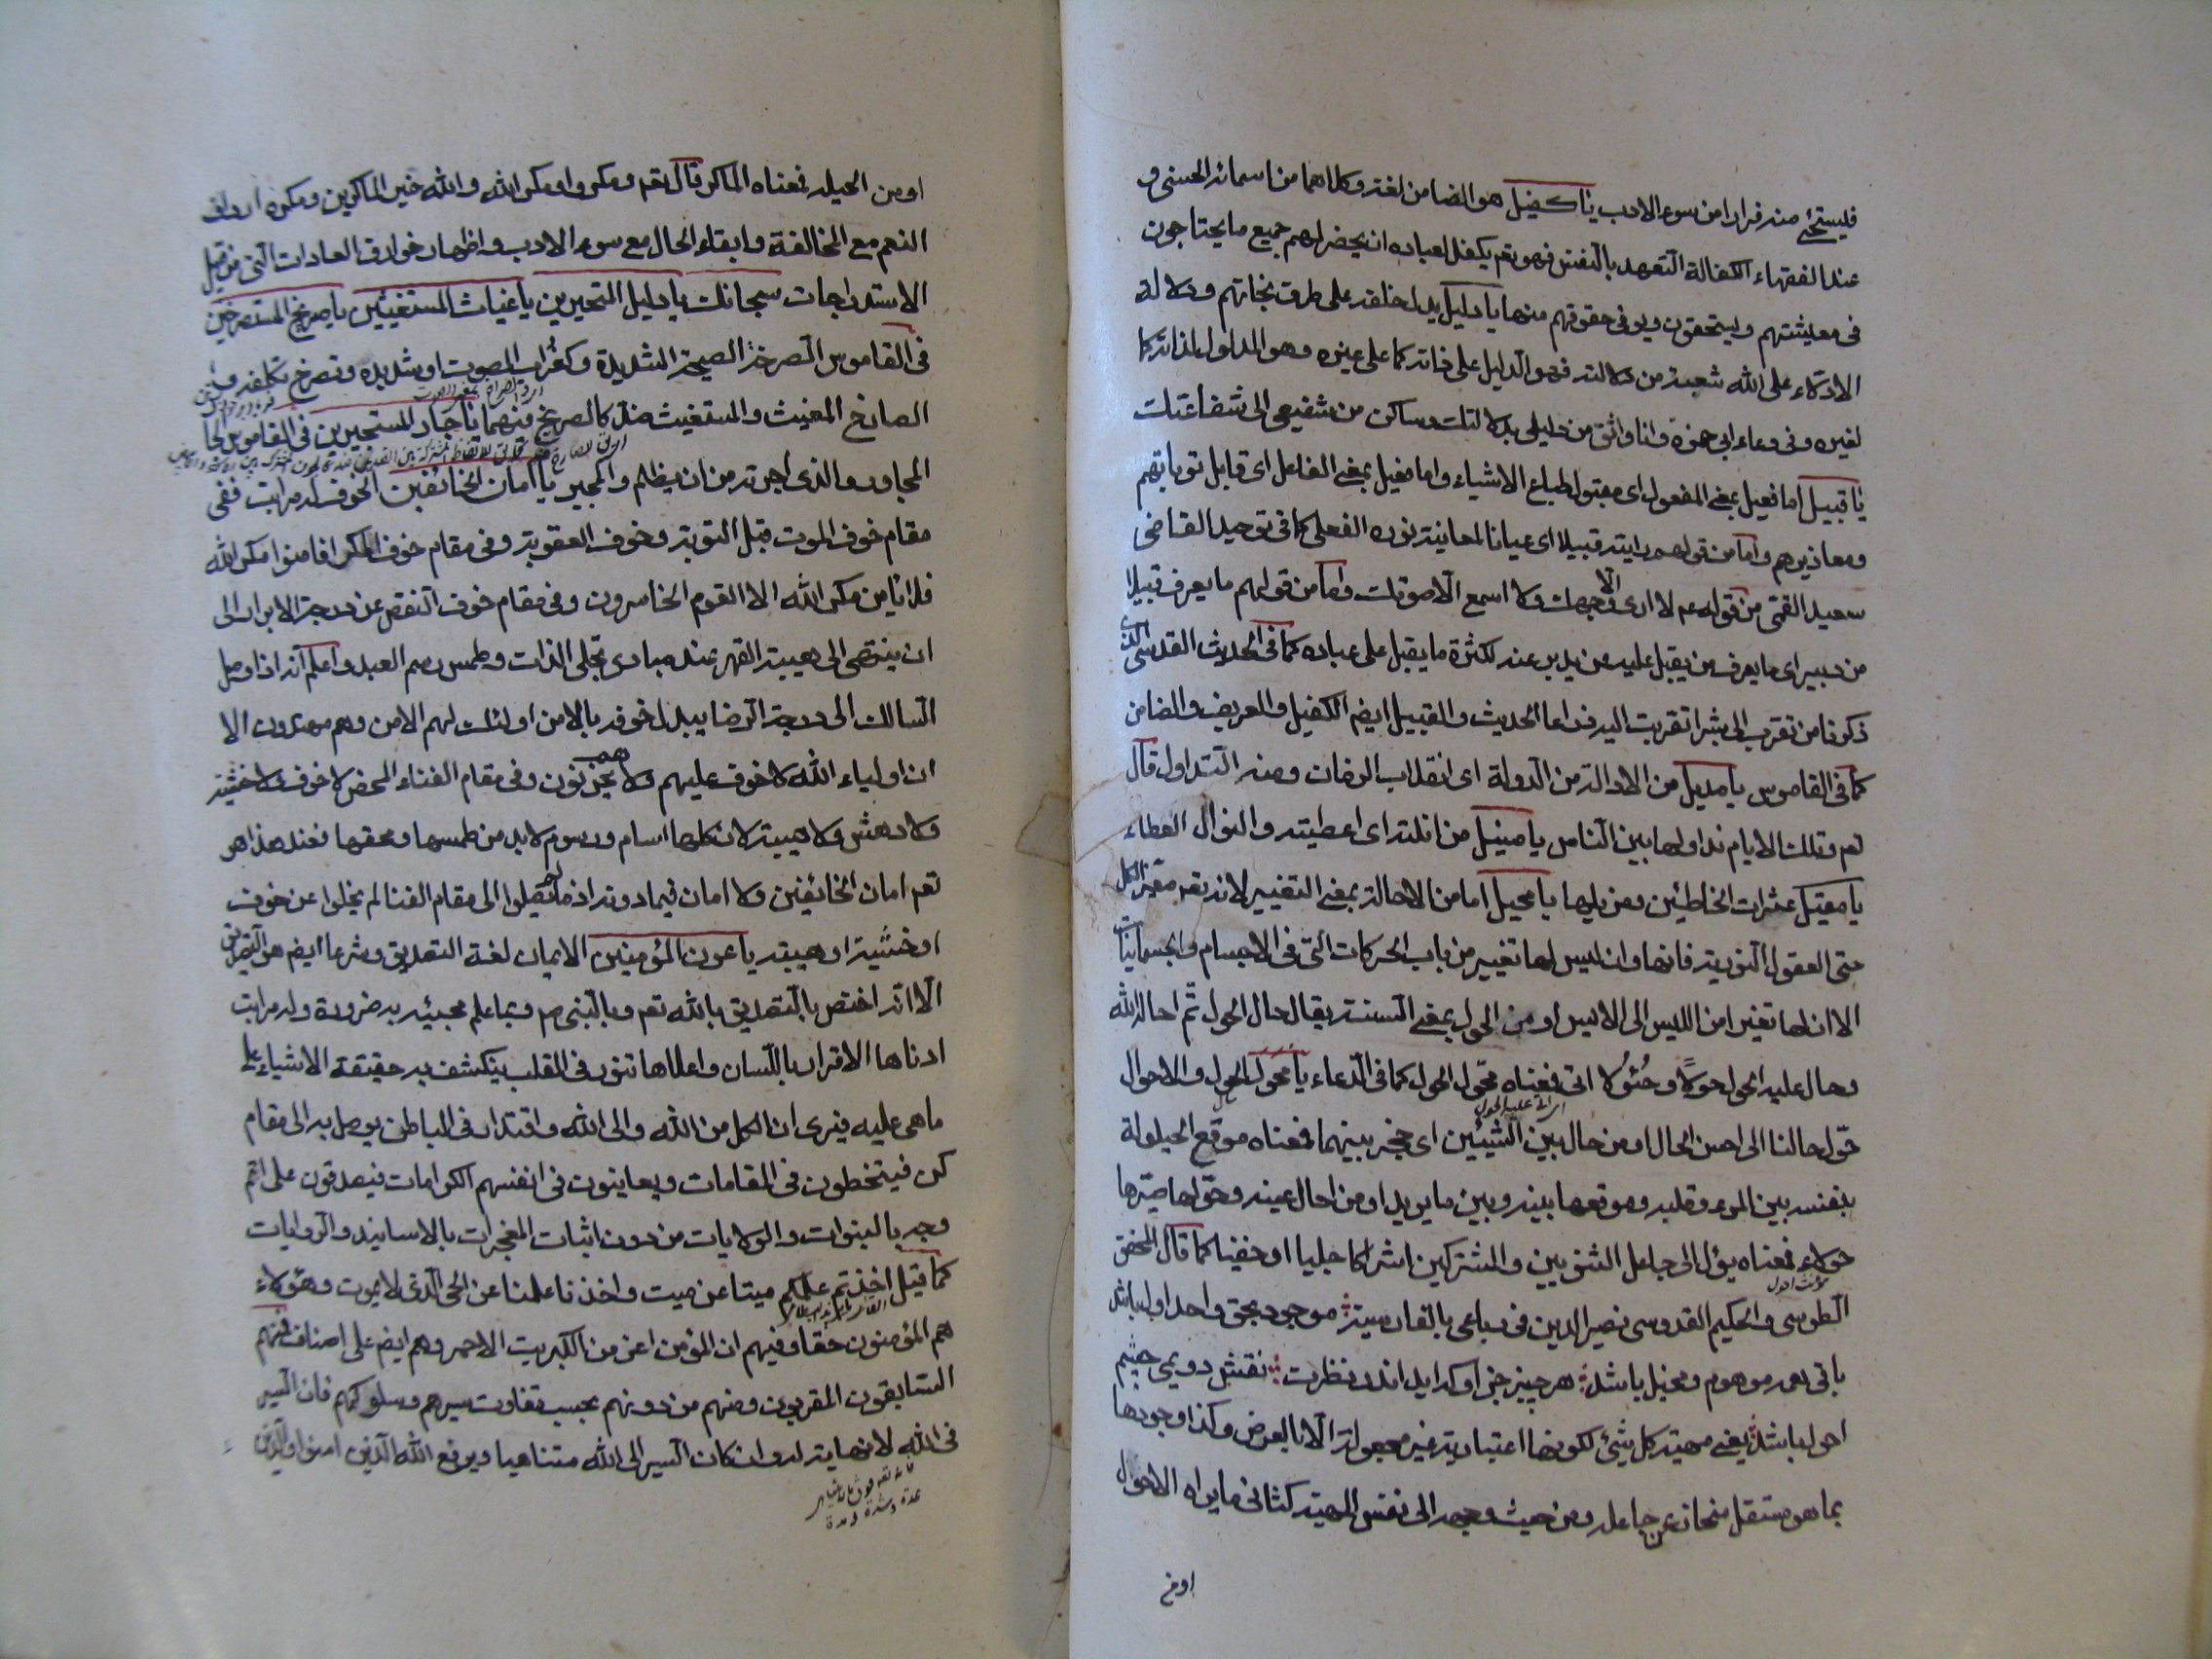 فليستحيى منه فرارا من سوء الادب يا كفيل هو الضامن لغة وكلاهما من اسمائه الحسنى و
عند الفقهاء الكفالة التعهد بالنفس فهو تعم يكفل لعباده ان يحضر لهم جميع ما يحتاجون
فى معيشتهم ويستحقون ويوفى حقوقهم منها يا دليل يدل خلقه على طرق نجاتهم ودلالة
الادلاء على الله شعبة من دلالته فهو الدليل على ذاته كما على غيره وهو المدلول لذاته كما
لغيره وفى دعاء ابى حمزة وانا واثق من دليلى بدلالتك وساكن من شفيعى الى شفاعتك
يا قبيل اما فعيل بمعنى المفعول اى مقبول طباع الاشياء واما فعيل بمعنى الفاعل اى قابل توباتهم
ومعاذيرهم واما من قولهم رايته قبيلا اى عيانا لمعاينة نوره الفعلى كما فى توحيد القاضى
سعيد القمى من قوله عم لا ارى الا وجهك ولا اسمع الا صوتك واما من قولهم ما يعرف قبيلا
من دبير اى ما يعرف من يقبل عليه ممن يدبر عنه لكثرة ما يقبل على عباده كما فى الحديث القدسى الذى
ذكرنا من تقرب الى شبرا تقربت اليه ذراعا الحديث والقبيل ايضم الكفيل والعريف والضامن
كما فى القاموس يا مديل من الادالة من الدولة اى انقلاب الزمان ومنه التداول قال
تعم وتلك الايام نداولها بين الناس يا منيل من انلته اى اعطيته والنوال العطاء
يا مقيل عثرات الخاطئين ومزيلها يا محيل اما من الاحالة بمعنى التغيير لانه تعم مغير الكل
حتى العقول النورية فانها وان ليس لها تغيير من باب الحركات التى فى الاجسام والجسمانيات
الا ان لها تغيرا من الليس الى الايس او من الحول بمعنى السنة يقال حال الحول تم احاله الله
وحال عليه الحول حولا وحئولا اتى فمعناه محول الحول كما فى الدعاء يا محول الحول والاحوال
اى اتى عليه الحول
حول حالنا الى احسن الحال او من حال بين الشيئين اى حجز بينهما فمعناه موقع الحيلولة
بنفسه بين المرء وقلبه وموقعها بينه وبين ما يريد او من احال عينه وحولها صيرها
حولاء فمعناه يؤل الى جاعل الثنويين والمشتركين اشراكا جليا او خفيا كما قال المحقق
مؤنث احول
الطوسى والحكيم القدوسى نصير الدين فى رباعى بالفارسية موجود بحق واحد اول باشد
باقى همه موهوم ومخيل باشد هر چيز جز او كه ايد اندر نظرت نقش دويمين چشم
احول باشد يعنى مهية كل شئ لكونها اعتبارية غير مجعولة الا بالعرض وكذا وجودها
بما هو مستقل منحاز عن جاعله ومن حيث وجهه الى نفس المهية كثانى ما يراه الاحول
او من
او من الحيلة فمعناه الماكر قال تعم ومكروا ومكر الله والله خير الماكرين ومكره ارداف
النعم مع المخالفة وابقاء الحال مع سوء الادب واظهار خوارق العادات التى من قبيل
الاستدراجات سبحانك يا دليل المتحيرين يا غياث المستغيثين يا صريخ المستصرخين
فى القاموس الصرخة الصيحة الشديدة وكغراب الصوت او شديده وتصرخ تكلفه و
الصارخ المغيث والمستغيث ضد كالصريخ فيهما يا جار المستجيرين فى القاموس الجار
المجاور والذى اجرته من ان يظلم والمجير يا امان الخائفين الخوف له مراتب ففى
مقام خوف الموت قبل التوبة وخوف العقوبة وفى مقام خوف المكر افامنوا مكر الله
فلا يامن مكر الله الا القوم الخاسرون وفى مقام خوف النقص عن درجة الابرار الى
ان ينتهى الى هيبة القهر عند مبادى تجلى الذات وطمس رسم العبد واعلم انه اذا وصل
السالك الى درجة الرضا يبدل خوفه بالامن اولئك لهم الامن وهم مهتدون الا
ان اولياء الله لا خوف عليهم ولا هم يحزنون وفى مقام الفناء المحض لا خوف ولا خشية
ولا دهش ولا هيبة لان كلها اسام ورسوم لا بد من طمسها ومحقها فعند هذا هو
تعم امان الخائفين ولا امان فيما دونه اذ ما لم يصلوا الى مقام الفنا لم يخلوا عن خوف
او خشية او هيبة يا عون المؤمنين الايمان لغة التصديق وشرعا ايضم هو التصديق
الا انه اختص بالتصديق بالله تعم وبالنبى صم وبما علم مجيئه به ضرورة وله مراتب
ادناها الاقرار باللسان واعلاها تنور فى القلب ينكشف به حقيقة الاشياء على
ما هى عليه فيرى ان الكل من الله والى الله واقتدار فى الباطن يوصل به الى مقام
كن فيتخطون فى المقامات ويعاينون فى انفسهم الكرامات فيصدقون على اتم
وجه بالنبوات والولايات من دون اثبات المعجزات بالاسانيد والروايات
كما قيل اخذتم علمكم ميتا عن ميت واخذنا علمنا عن الحى الذى لا يموت وهؤلاء
هم المؤمنون حقا وفيهم ان المؤمن اعز من الكبريت الاحمر وهم ايضم على اصناف فمنهم
السابقون المقربون ومنهم من دونهم بحسب تفاوت سيرهم وسلوكهم فان السير
فى الله لا نهاية له وان كان السير الى الله متناهيا ويرفع الله الذين امنوا والذين
عدة وشدة ومدة